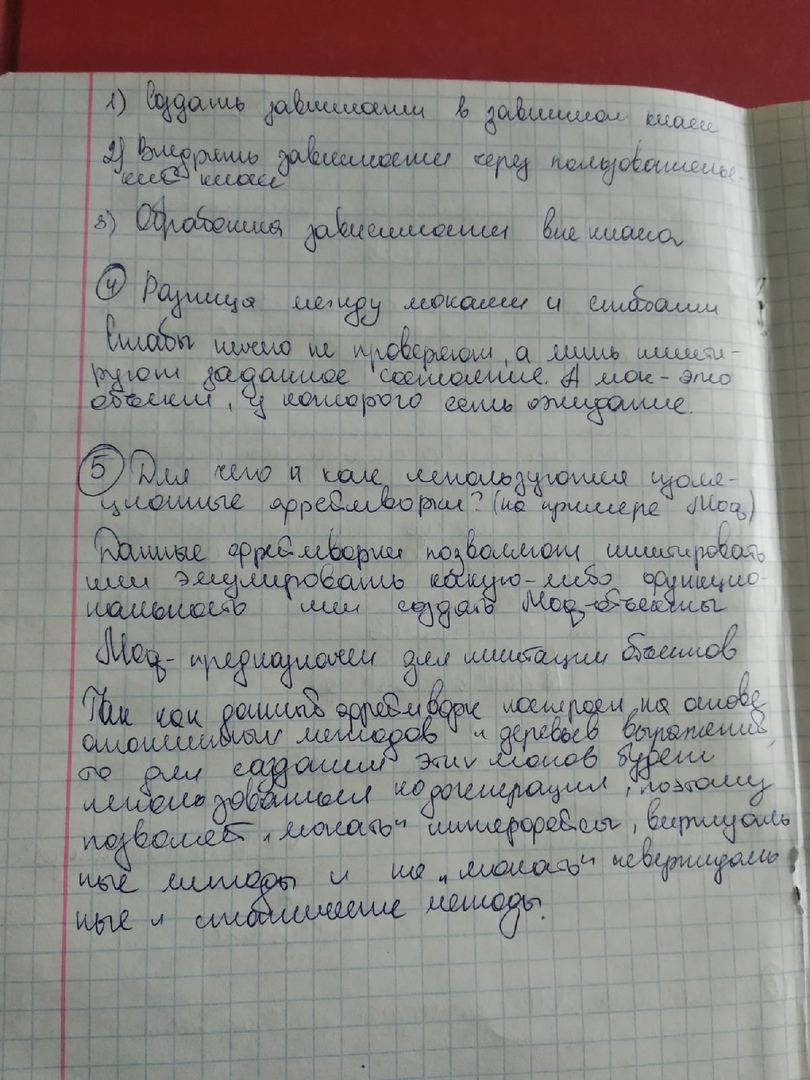 1) Создать зависимости в зависимом классе
2) Внедрять зависимости через пользователь-
ский класс
3) Обработка зависимости вне класса
④ Разница между моками и стабами
Стабы ничего не проверяют, а лишь имити-
руют заданное состояние. А мок - это
объект, у которого есть ожидание.
⑤ Для чего и как используются изоля-
ционные фреймворки? (на примере Moq)
Данные фреймворки позволяют имитировать
или эмулировать какую-либо функцио-
нальность или создать Moq-объекты
Moq - предназначен для имитации объектов
Так как данный фреймворк построен на основе
анонимных методов и деревьев выражений,
то для создания этих моков будет
использоваться кодогенерация, поэтому
позволяет "мокать" интерфейсы, виртуаль
ные методы и не "мокать" невиртуаль
ные и статические методы.